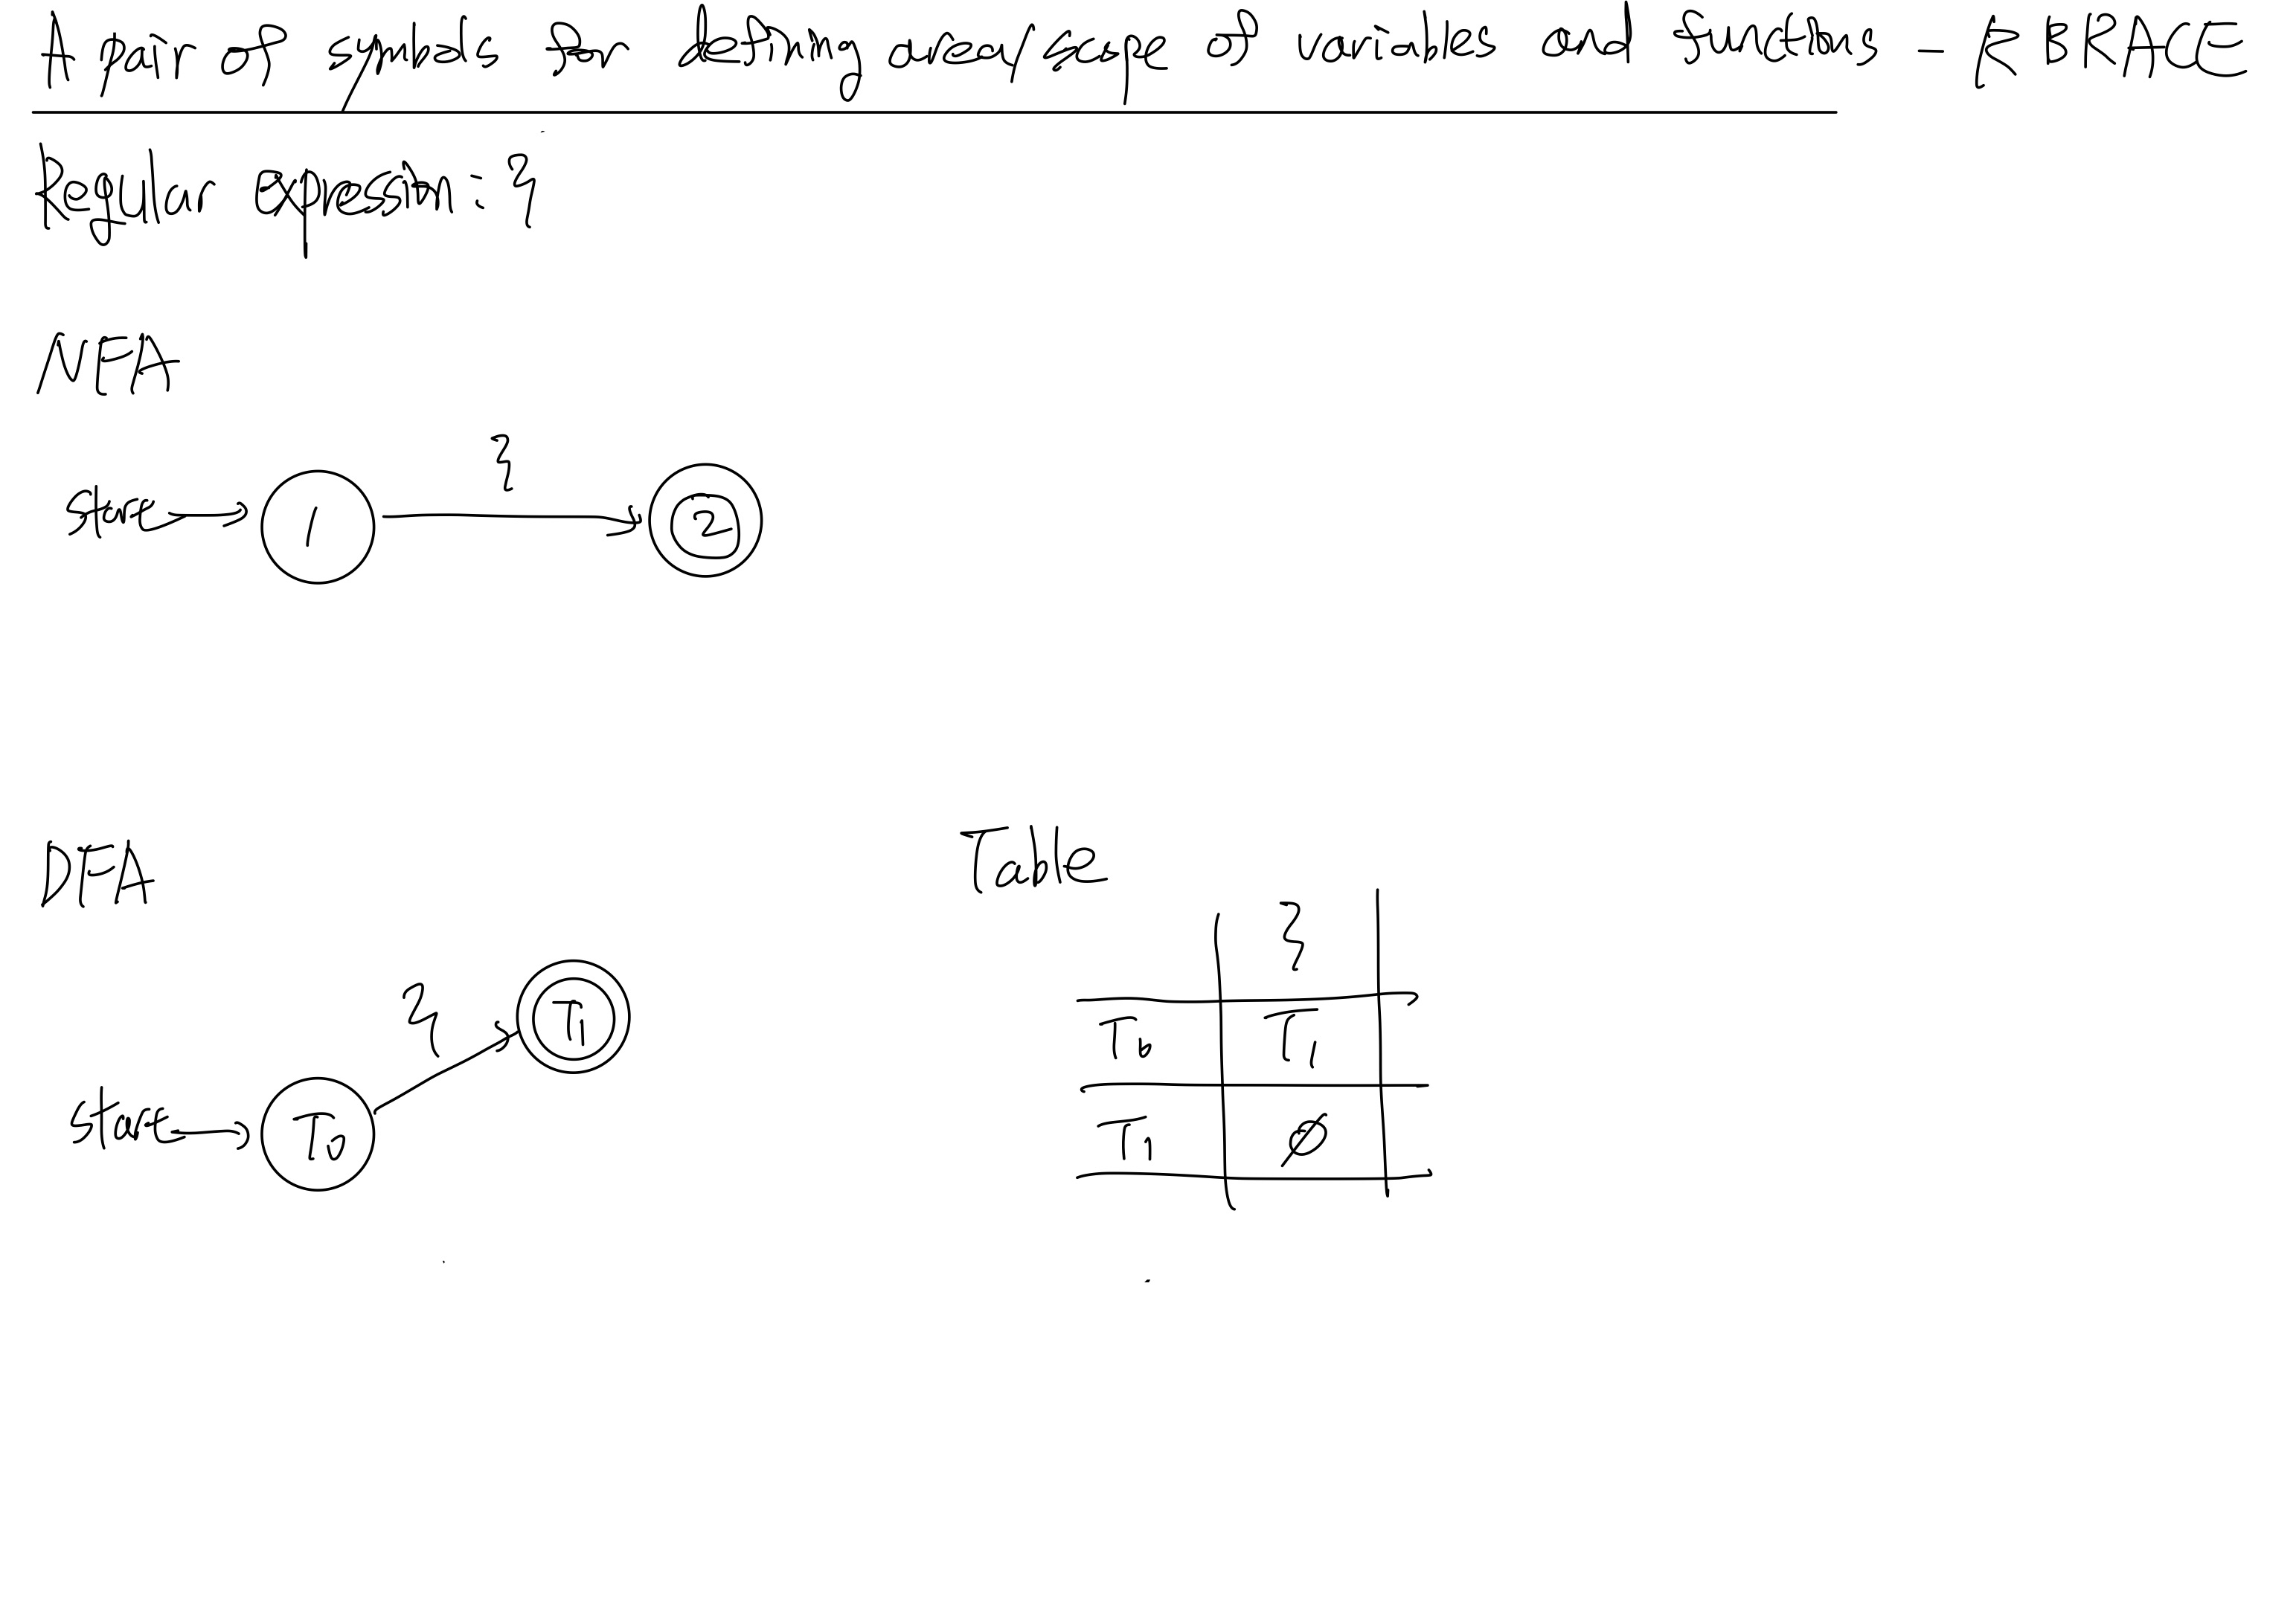 A pair of symbols for defining area/scope of variables and functions - R BRACE
Regular expression: }
NFA
}
start 1 2
DFA
Table
}
} T1
T0 T1
start T0
T1 ∅